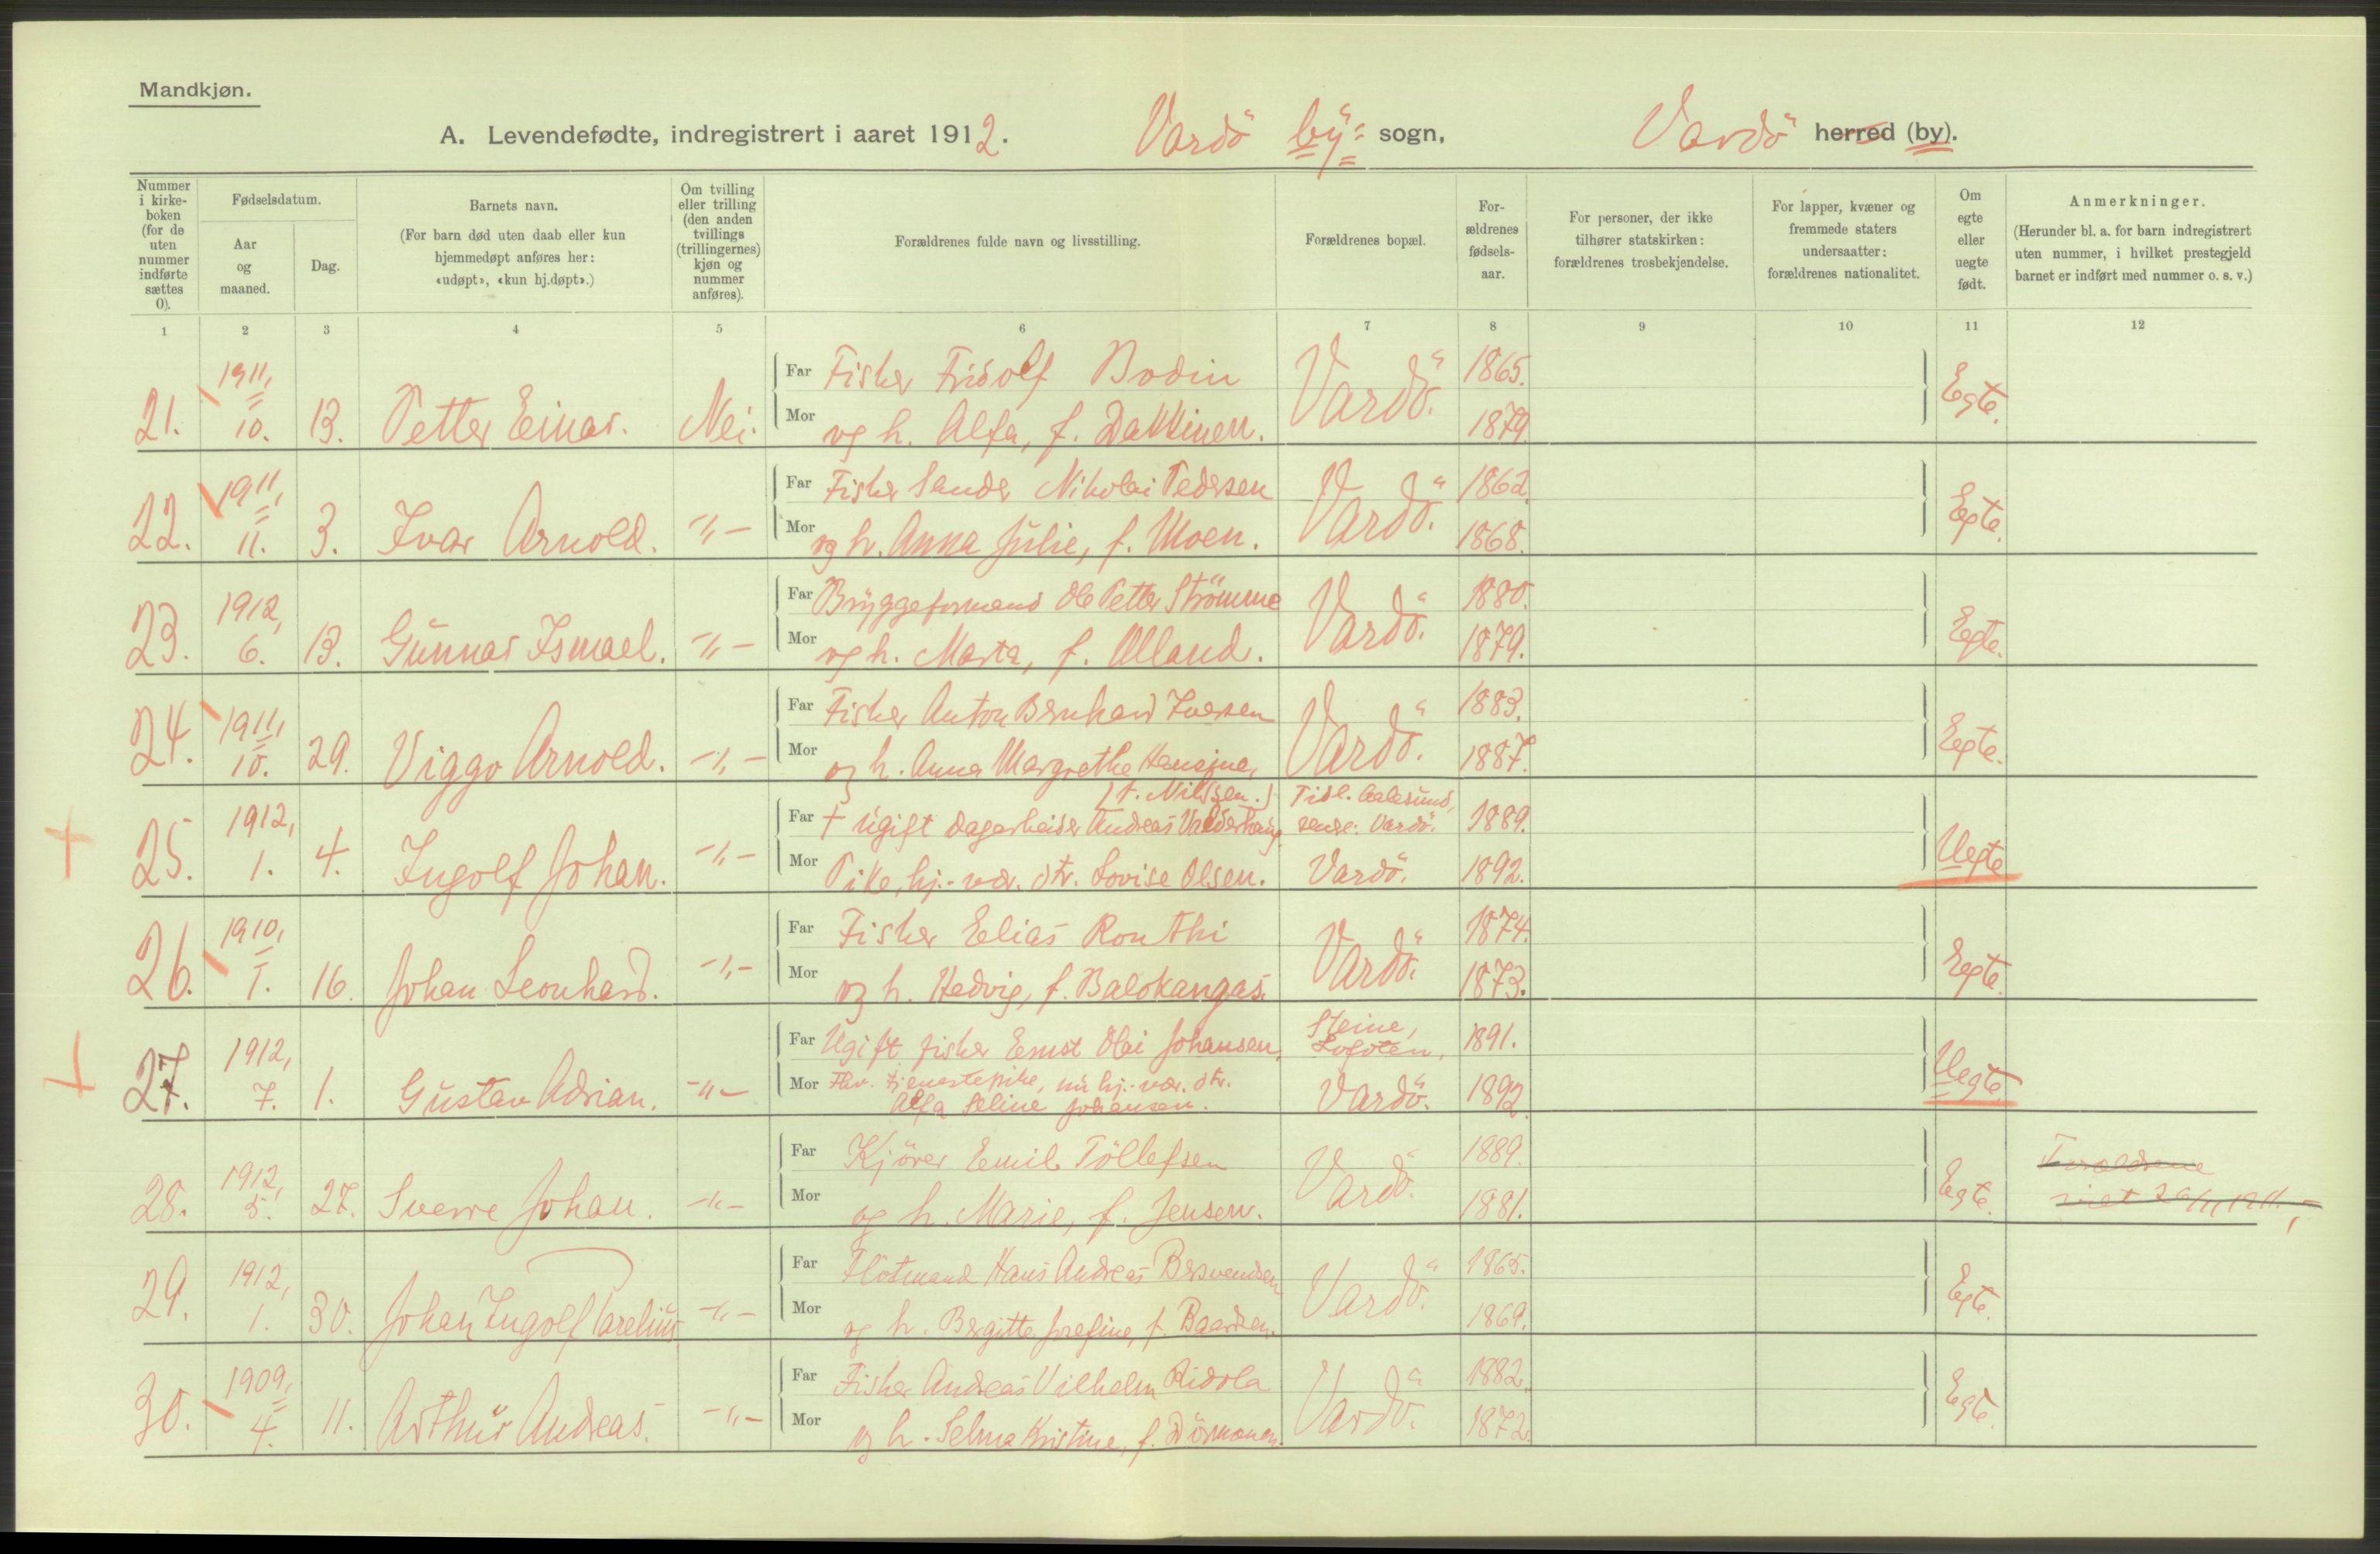 Mandkjøn.
A. Levendefødte, indregistrert i aaret 1912. Vardö by= sogn, Vardö herred (by).
Nummer i kirke-boken (for de uten nummer indførte sættes 0).
Fødselsdatum.
Aar og maaned.
Dag.
Barnets navn.
(For barn død uten daab eller kun hjemmedøpt anføres her: «udøpt», «kun hj.døpt».)
Om tvilling eller trilling (den anden tvillings (trillingernes) kjøn og nummer anføres).
Forældrenes fulde navn og livsstilling.
Forældrenes bopæl.
For-ældrenes fødsels-aar.
For personer, der ikke tilhører statskirken: forældrenes trosbekjendelse.
For lapper, kvæner og fremmede staters undersaatter: forældrenes nationalitet.
Om egte eller uegte født.
Anmerkninger.
(Herunder bl. a. for barn indregistrert uten nummer, i hvilket prestegjeld barnet er indført med nummer o. s. v.)
1 2 3 4 5 6 7 8 9 10 11 12
21. 1911, 10. 13. Petter Einar. Nei. Far Fisker Fridolf Bodin Vardö. 1865. Egte.
Mor og h. Alfa, f. 1879.
22. 1911, 11. 3. Ivar Arnold. -"- Far Fisker Sander Nikolai Pedersen Vardö. 1862. Egte.
Mor og h. Anna Julie, f. Moen. 1868.
23. 1912, 6. 13. Gunnar Ismael. -"- Far Bryggeformand Ole Petter Strömme Vardö. 1880. Egte.
Mor og h. Marta, f. Olland. 1879.
24. 1911, 10. 29. Viggo Arnold. -"- Far Fisker Anton Bernhard Iversen Vardö. 1883. Egte.
Mor og h. Anna Margrethe Hansine, 1887.
(f. Nilssen.)
25. 1912, 1. 4. Ingolf Johan. -"- Far † Ugift dagarbeider Andreas Valderhaug Tidl. Aalesund, senere: Vardö. 1889. Uegte
Mor Pike, hj.-vær. dtr. Lovise Olsen. Vardö. 1892.
26. 1910, 1. 16. Johan Leonhard. -"- Far Fisker Elias Ronthi Vardö. 1874. Egte.
Mor og h. Hedvig, f. Balokangas. 1873.
27. 1912, 7. 1. Gustav Adrian. -"- Far Ugift fisker Ernst Olai Johansen, Steine, Lofoten, 1891. Uegte.
Mor Fhv. tjenestepike, nu hj.-vær. dtr. Vardö. 1892.
Alfa Seline Johansen.
28. 1912, 5. 27. Sverre Johan. -"- Far Kjörer Emil Töllefsen Vardö. 1889. Egte. Foreldrene
Mor og h. Marie, f. Jensen. 1881. viet 26/11 1911.
29. 1912, 1. 30. Johan Ingolf Parelius. -"- Far Flötmand Hans Andreas Bersvendsen Vardö. 1865. Egte.
Mor og h. Bergitte Josefine, f. Baardsen. 1869.
30. 1909, 4. 11. Arthur Andreas. -"- Far Fisker Andreas Vilhelm Ridola Vardö. 1882. Egte.
Mor og h. Selma Kristine, f. 1872.